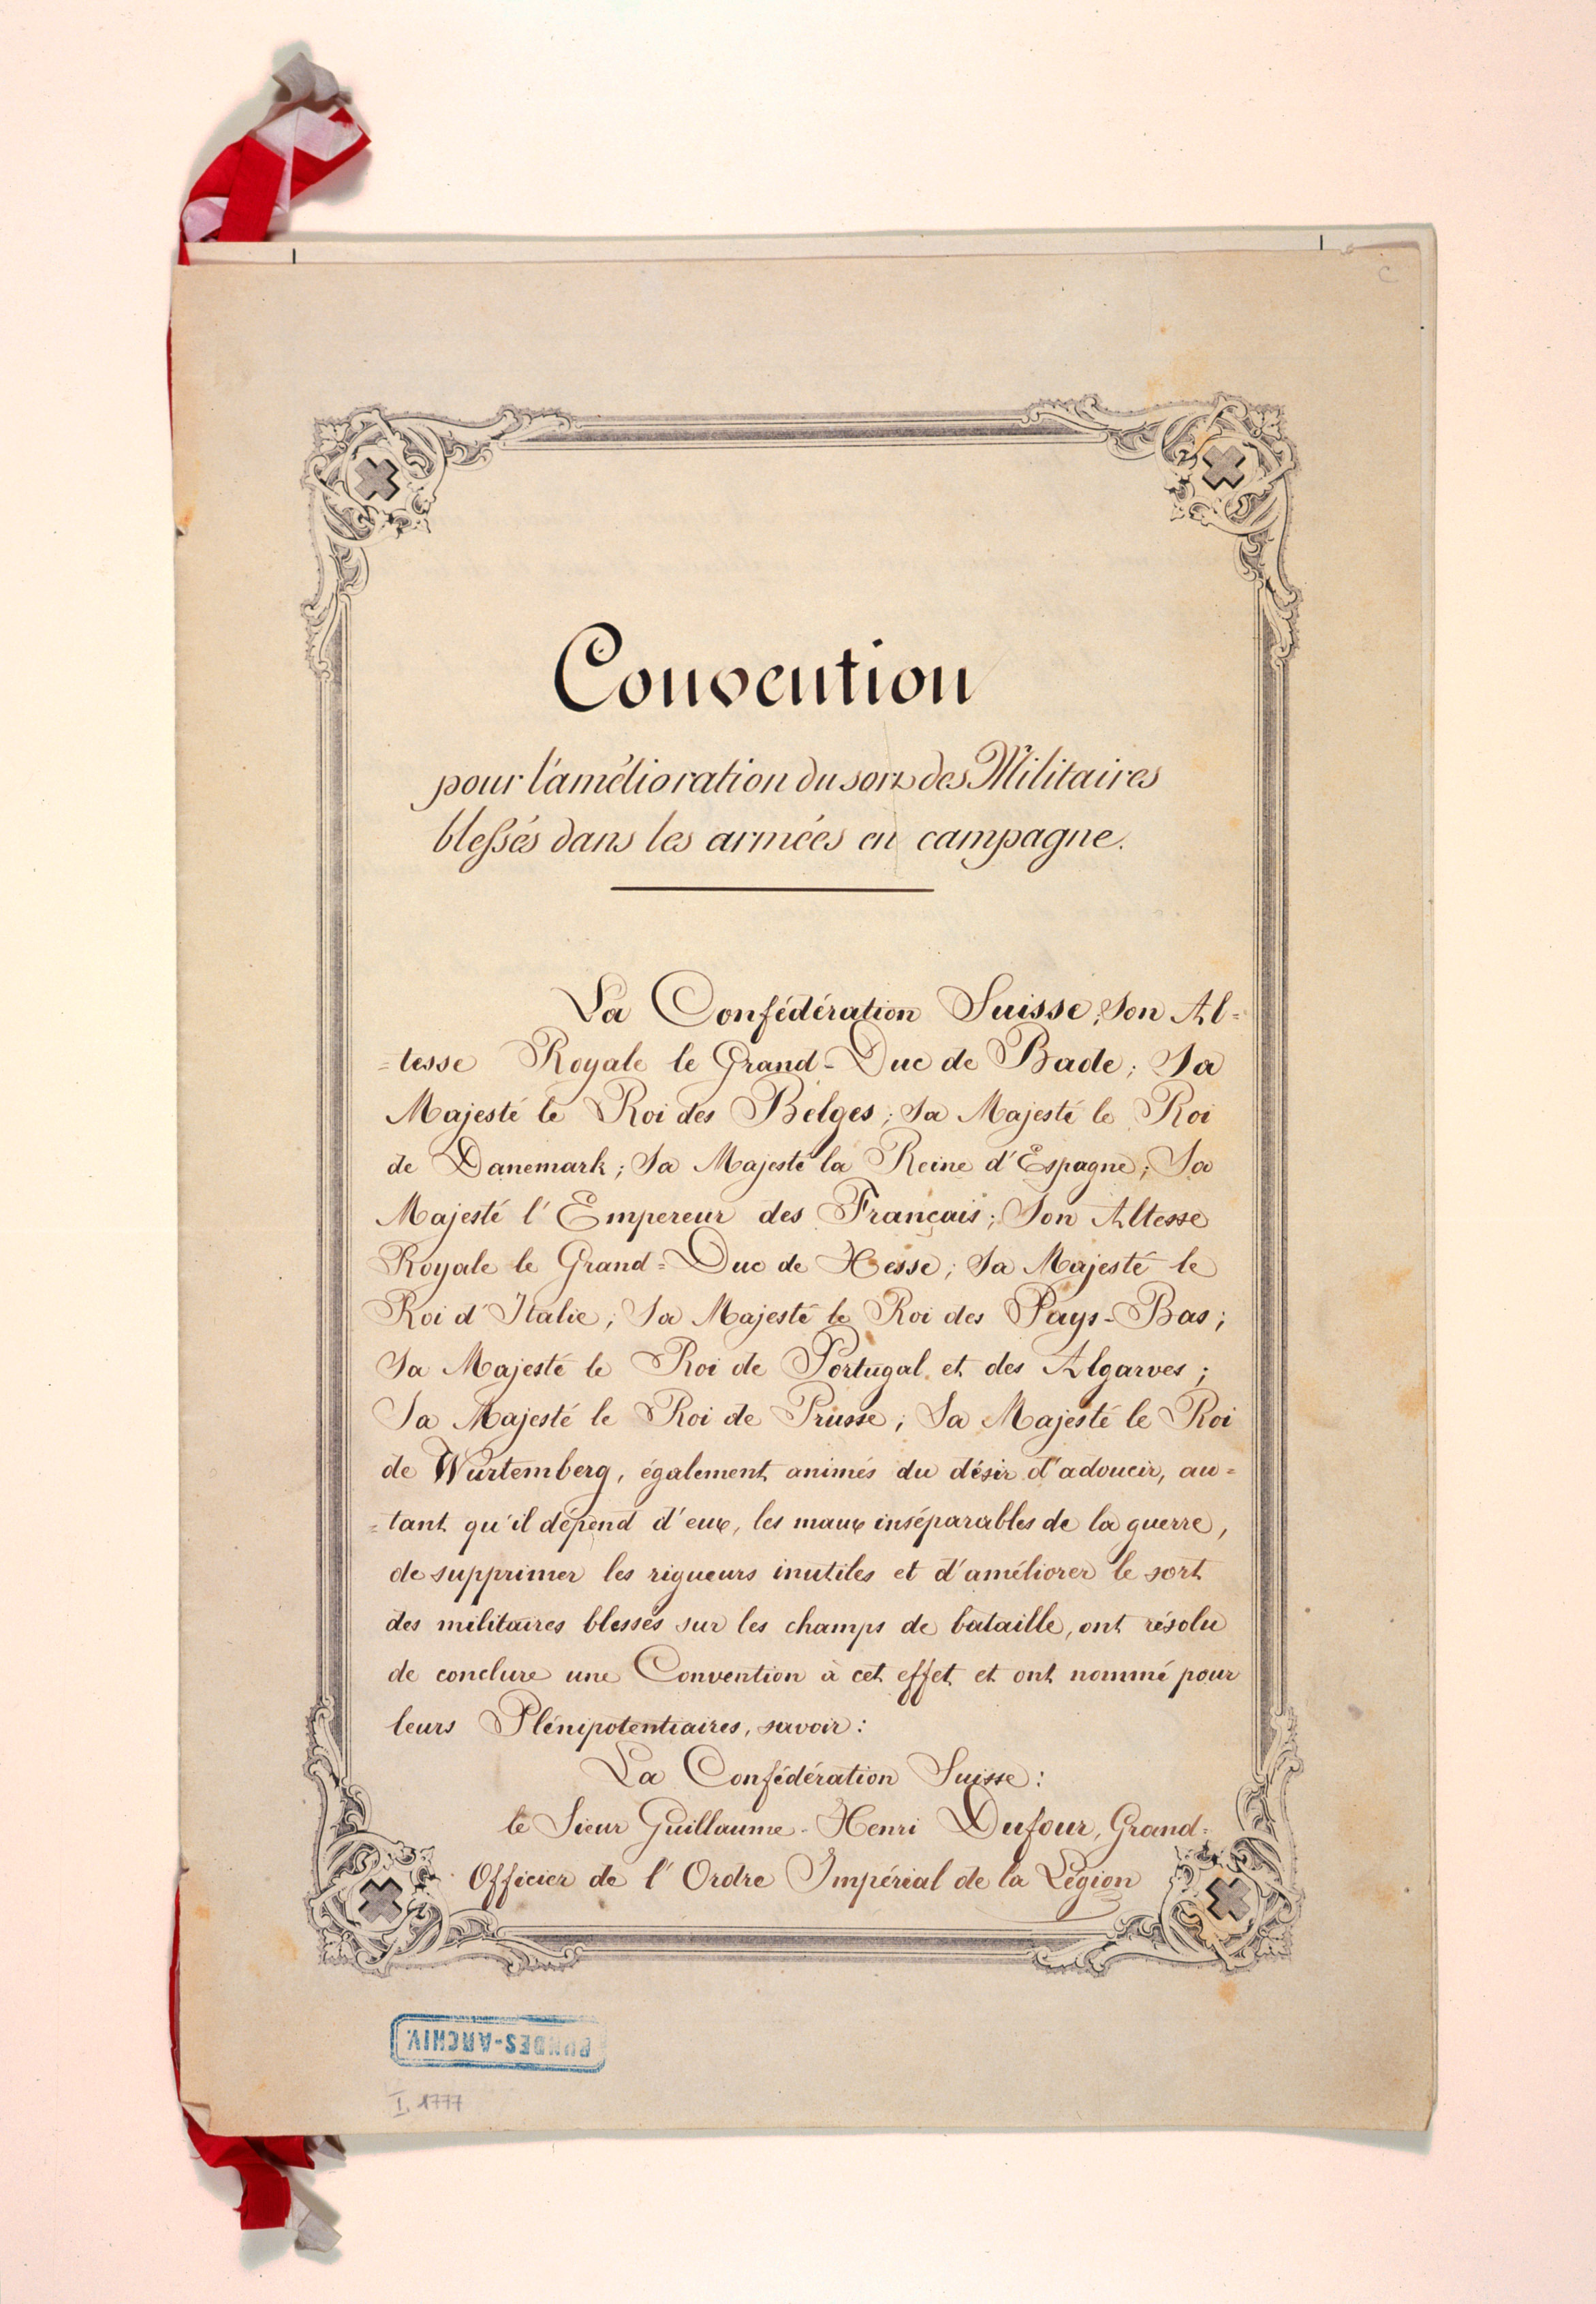 C
Convention
pour l'amélioration du sort des Militaires
blessés dans les armées en campagne.
La Confédération Suisse; Son Al=
=tesse Royale le Grand-Duc de Bade; Sa
Majesté le Roi des Belges; Sa Majesté le Roi
de Danemark; Sa Majesté la Reine d'Espagne; Sa
Majesté l'Empereur des Français; Son Altesse
Royale le Grand=Duc de Hesse; Sa Majesté le
Roi d'Italie; Sa Majesté le Roi des Pays-Bas;
Sa Majesté le Roi de Portugal et des Algarves;
Sa Majesté le Roi de Prusse; Sa Majesté le Roi
de Wurtemberg, également animés du désir d'adoucir, au=
=tant qu'il dépend d'eux, les maux inséparables de la guerre,
de supprimer les rigueurs inutiles et d'améliorer le sort
des militaires blessés sur les champs de bataille, ont résolu
de conclure une Convention à cet effet et ont nommé pour
leurs Plénipotentiaires, savoir:
La Confédération Suisse:
le Sieur Guillaume-Henri Dufour, Grand-
Officier de l'Ordre Impérial de la Légion
BUNDES-ARCHIV.
I, 1777